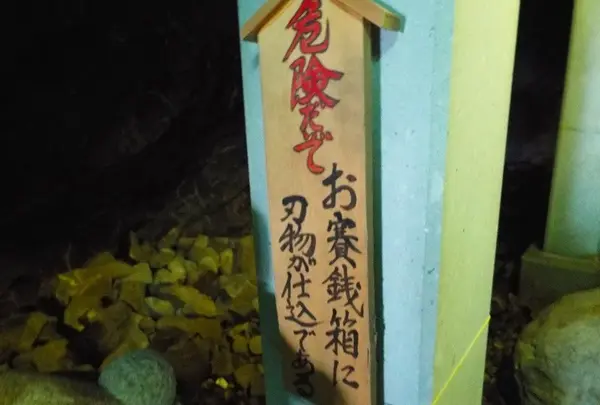 危険だぞ
お賽銭箱に
刃物が仕込である